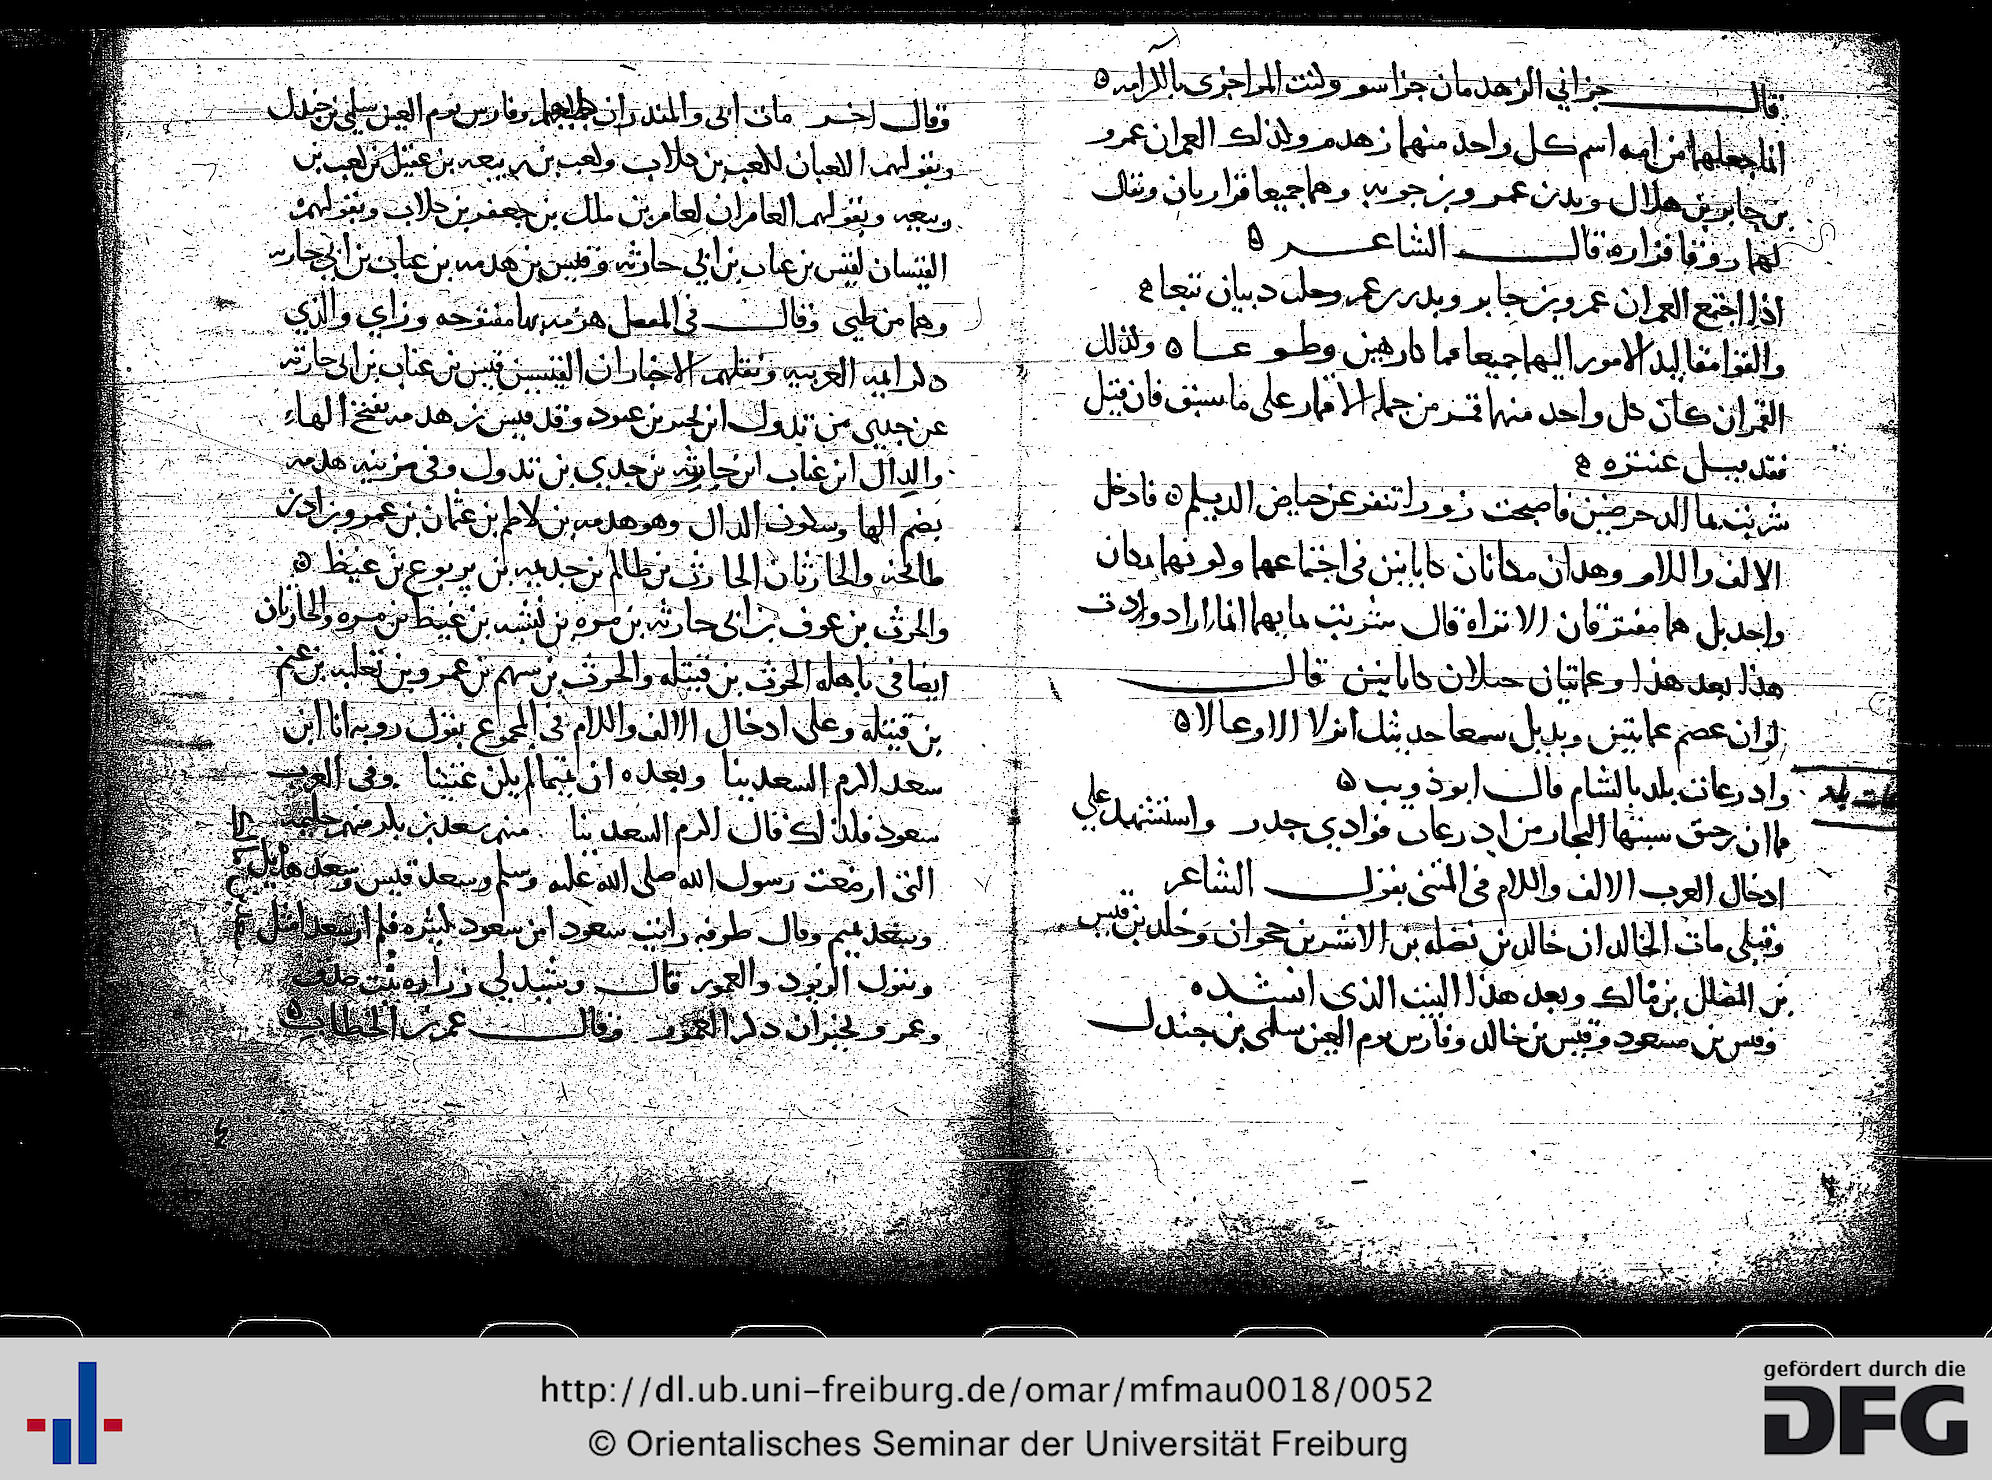 قال جزاني الزهدمان جزا سو وكنت المرا جزى بالكرامه ه
انما جعلهما من امه اسم كل واحد منهما زهدم وكذلك العمران عمرو
بن جابر بن هلال وبدر بن عمرو بن جويه وهما جميعا فزاريان ويقال
لهما روقا فزاره قال الشاعر ه
اذا اجتمع العمران عمرو بن جابر وبدر بن عمرو خلت دبيان تبعا
والقوا مقاليد الامور اليهما جميعا قما كارهين وطوعا ه وكذلك
القمران كان كل واحد منهما قمر من جملة الاقمار على ما سبق فان قيل
فقد قيل عنتره
شربت بما الدحرضين فاصبحت زورا تنفر عن حياض الديلم ه فادخل
الالف واللام وهدان مكانان كابانين في اجتماعهما وكونهما مكان
واحد بل هما مفترقان الا تراه قال شربت بما بهما انما اراد واردت
هذا بعد هذا وعمايتان جبلان كابانين قال
لو ان عصم عمايتين ويذبل سمعا حديثك انزلا الاوعالا ه
وادرعات بلد بالشام قال ابو ذويب ه
فما ان رحيق سبتها التجار من ادرعات فوادي جدر واستشهد على
ادخال العرب الالف واللام في المثنى بقول الشاعر
وقبلى مات الخالدان خالد بن نضله بن الاشتر بن جحوان وخلد بن قيس
بن المضلل بن مالك وبعد هذا البيت الذي انشده
وقيس بن مسعود وقيس بن خالد وفارس يوم العين سلمى بن جندل
وقال اخر مات ابى والمنذران كلاهما وفارس يوم العين سلمى بن جندل
وبقولهم الكعبان لكعب بن كلاب وكعب بن ربيعه بن عقيل بن كعب بن
ربيعه وبقولهم العامران لعامر بن ملك بن جعفر بن كلاب وبقولهم
القيسان لقيس بن عناب بن ابي حارثه وقيس بن هدمه بن عناب بن ابي حارثه
وهما من طيى وقال في المفصل هزمه بها مفتوحه وزاي والذي
ذكر ايمه العربيه ونقلهم الاخبار ان القيسين قيس بن عناب بن ابي حارثه
عن جدي من تدول ابن بحتر بن عتود وقد قيس بن هدمه بفتح الهاء
والدال ابن عناب ابن حارثه بن جدي بن تدول وفي مزينه هدمه
بضم الها وسكون الدال وهو هدمه بن لاطم بن عثمان بن عمرو بن اد بن
طابخه والحارثان الحارث بن ظالم بن جديمه بن يربوع بن غيظ ه
والحرث بن عوف بن ابي حارثه بن مره بن نشبه بن غيظ بن مره والحارثان
ايضا في باهله الحرث بن قتيبه والحرث بن سهم بن عمرو بن تعلبه بن غنم
بن قتيبه وعلى ادخال الالف واللام في المجموع بقول روبه انا ابن
سعد اكرم السعدينا وبعده ان تميما لم يكن عنينا وفي العرب
سعود فلذلك قال اكرم السعدينا منهم سعد بن بكر منهم حليمه
التى ارضعت رسول الله صلى الله عليه وسلم وسعد قيس وسعد هذيل
وسعد تميم وقال طرفه رايت سعودا من سعود كثيره فلم ار سعدا مثل
وبقول الزيود والعمور قال وشيد لي زراره
وعمرو ذكر العمور وقال عمر بن الخطاب ه
http://dl.ub.uni-freiburg.de/omar/mfmau0018/0052
© Orientalisches Seminar der Universität Freiburg
gefördert durch die
DFG